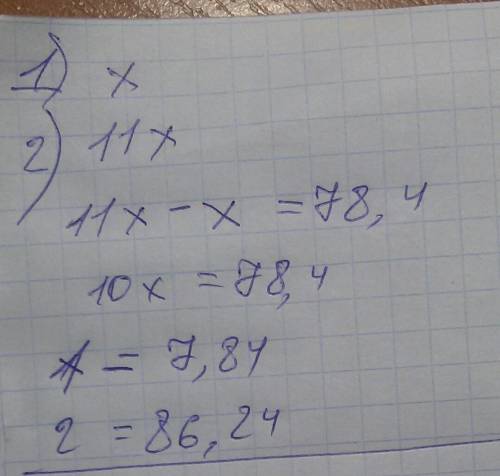 1) x
2) 11x
11x - x = 78,4
10x = 78,4
1 = 7,84
2 = 86,24